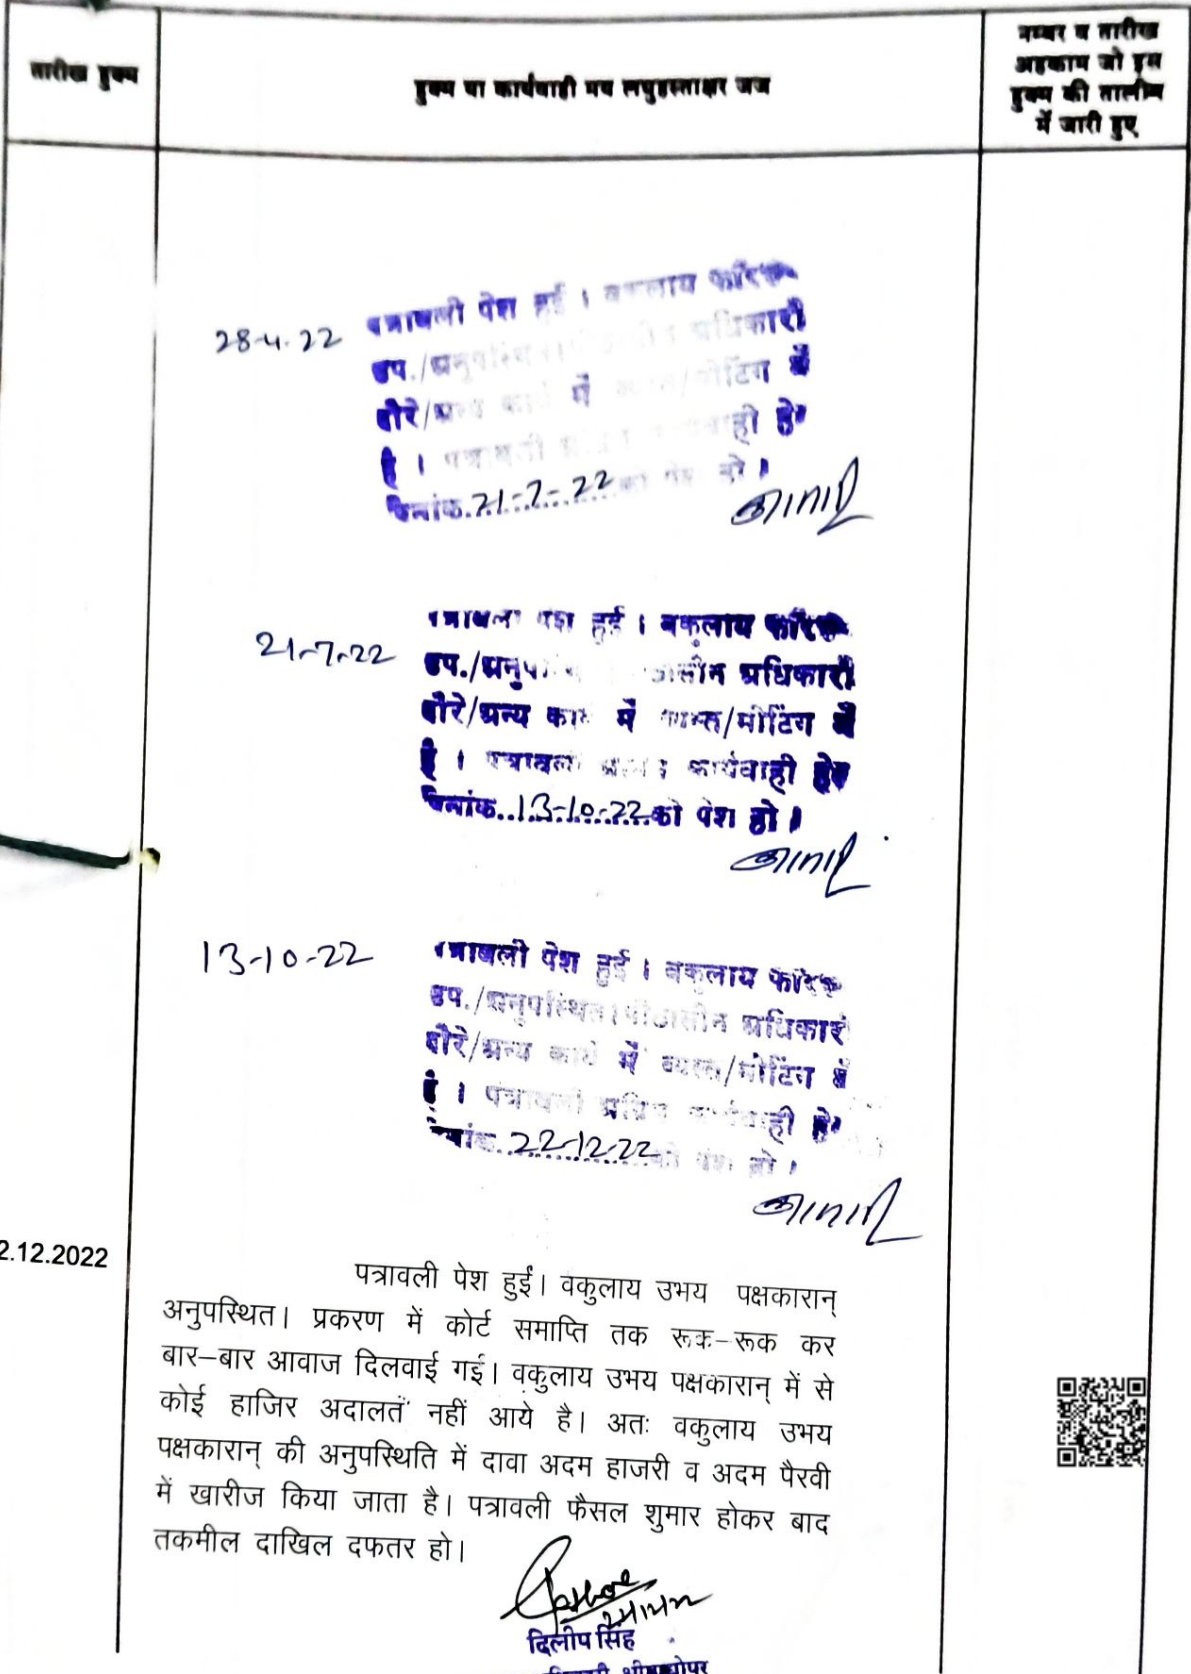 तारीख हुक्म
हुक्म या कार्यवाही मय लघुहस्ताक्षर जज
नम्बर व तारीख
अहकाम जो इस
हुक्म की तालीम
में जारी हुए
28-4-22
पत्रावली पेश हुई । वकुलाय
उप./अनुपस्थित अधिकारी
दौरे/अन्य कार्य में /मीटिंग में
है । पत्रावली
21-7-22 को पेश हो ।
21-7-22
पेश हुई । वकुलाय
उप./ अधिकारी
दौरे/अन्य कार्य में व्यस्त/मीटिंग में
है । पत्रावली कार्यवाही हेतु
13-10-22 को पेश हो ।
13-10-22
पत्रावली पेश हुई । वकुलाय
उप./अनुपस्थित।पीठासीन अधिकारी
दौरे/अन्य कार्य में व्यस्त/मीटिंग में
है । पत्रावली अग्रिम कार्यवाही
22-12-22 को पेश हो ।
2.12.2022
पत्रावली पेश हुई। वकुलाय उभय पक्षकारान्
अनुपस्थित। प्रकरण में कोर्ट समाप्ति तक रूक-रूक कर
बार-बार आवाज दिलवाई गई। वकुलाय उभय पक्षकारान् में से
कोई हाजिर अदालत नहीं आये है। अतः वकुलाय उभय
पक्षकारान् की अनुपस्थिति में दावा अदम हाजरी व अदम पैरवी
में खारीज किया जाता है। पत्रावली फैसल शुमार होकर बाद
तकमील दाखिल दफतर हो।
दिलीप सिंह